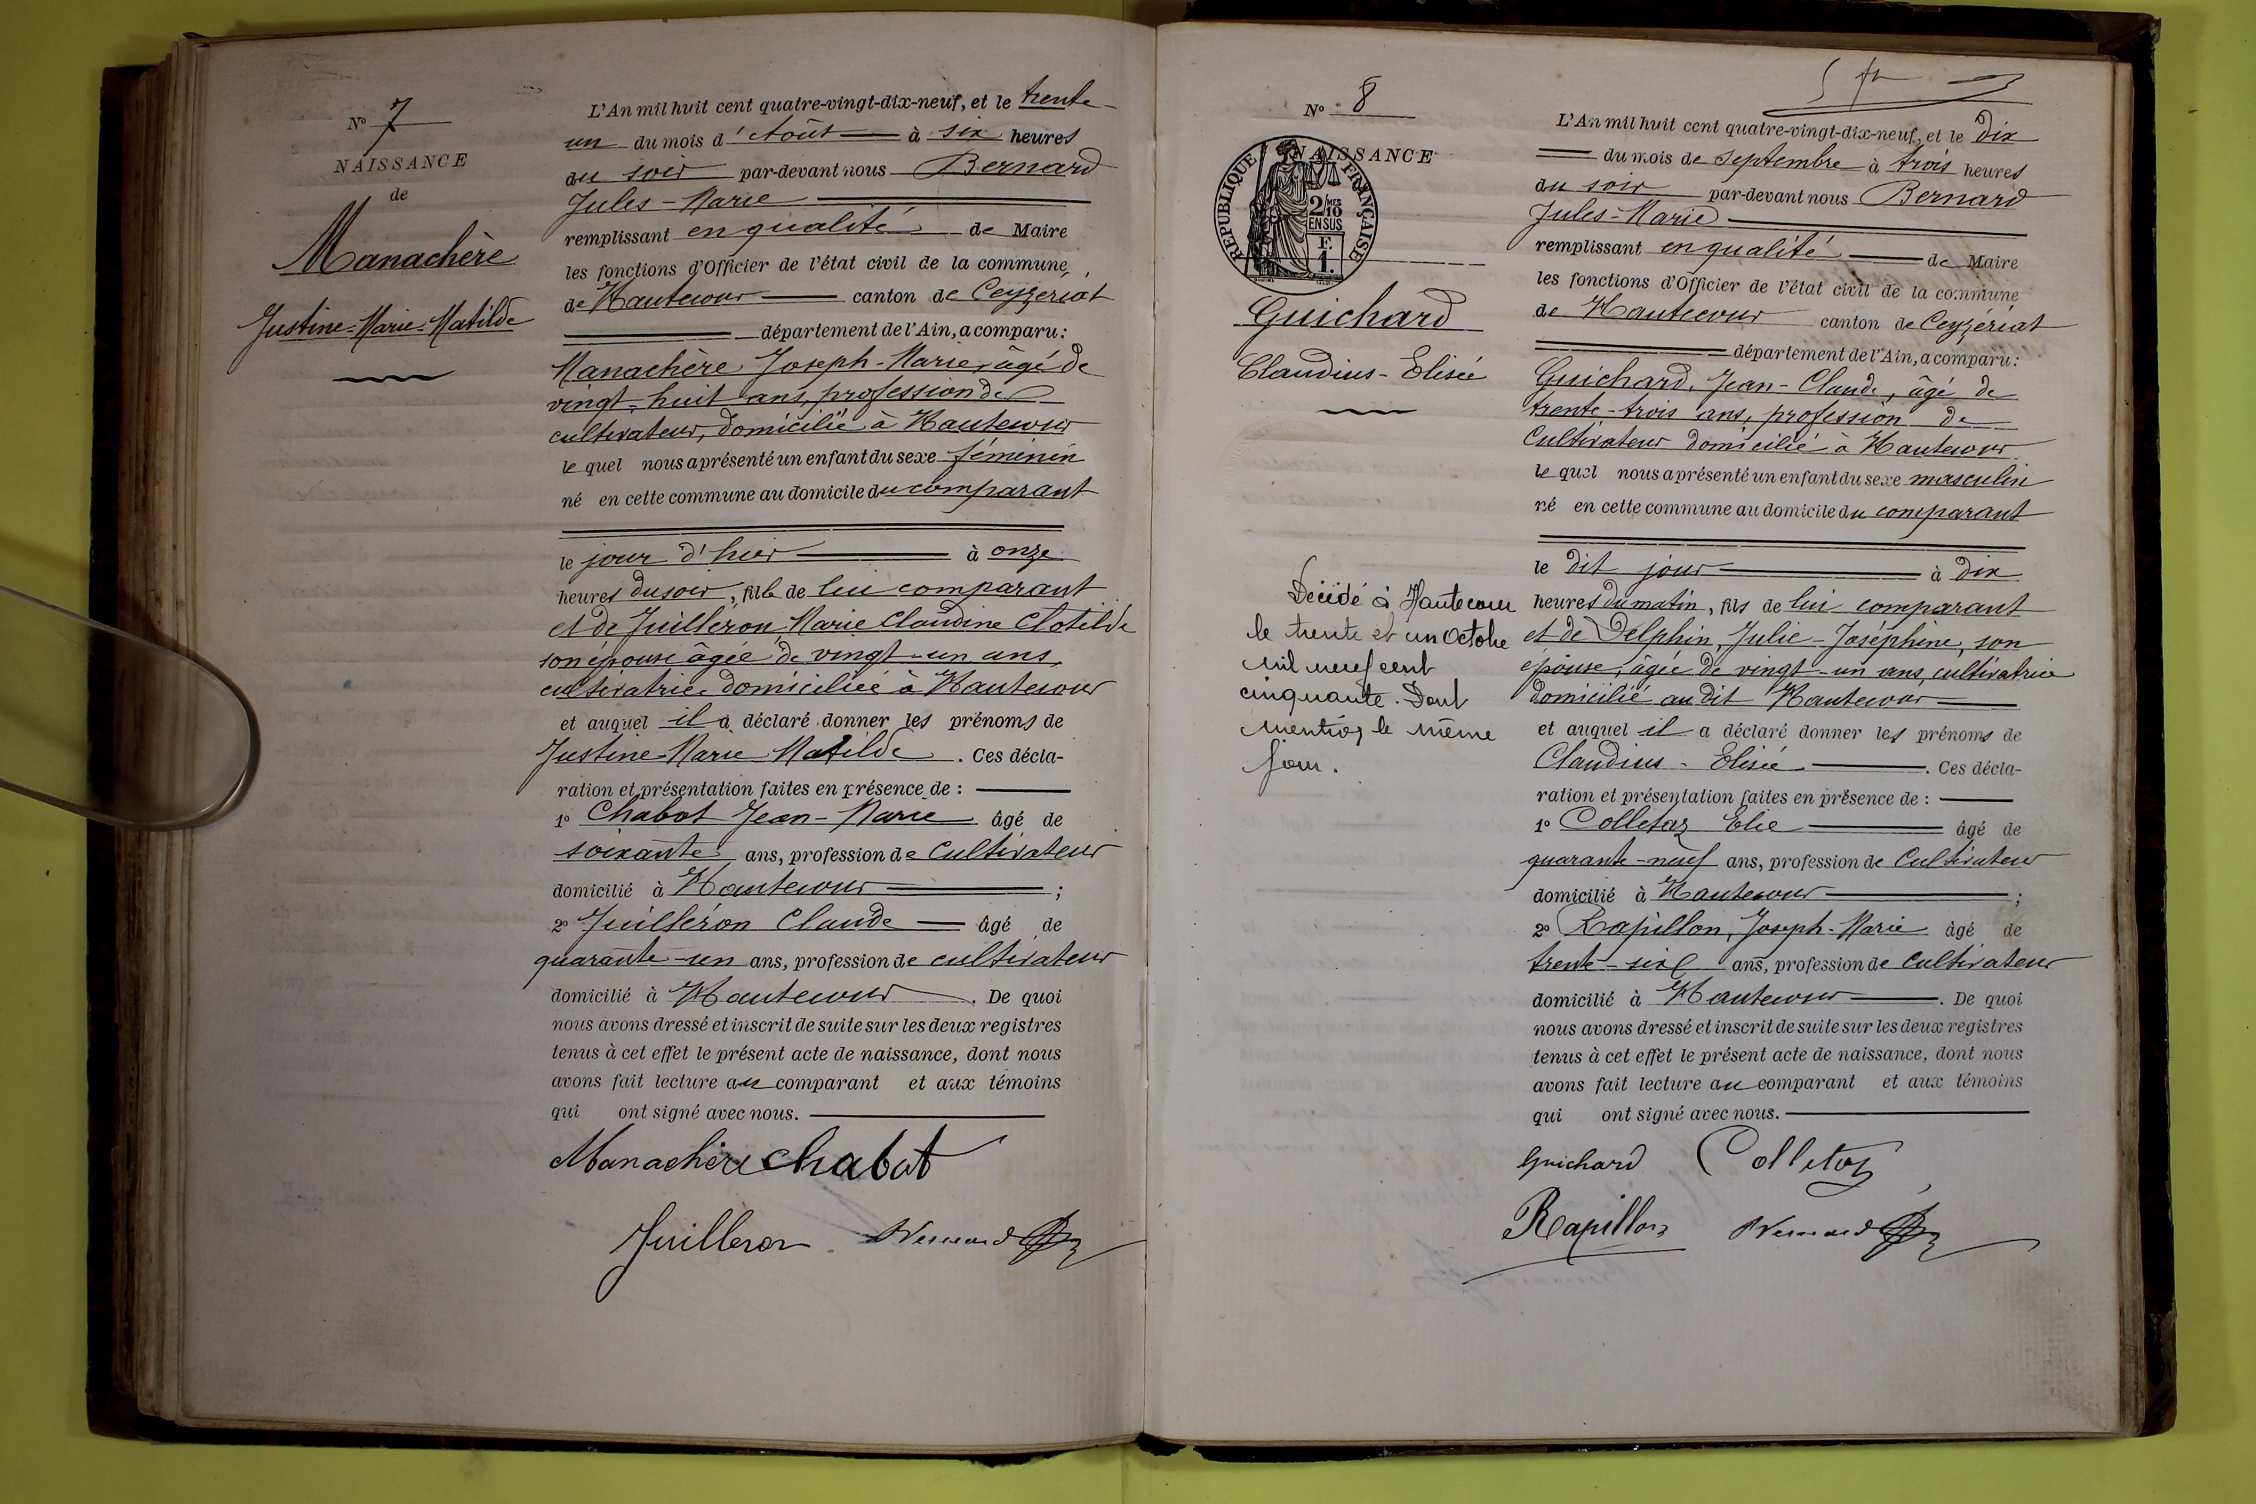 N° 7
NAISSANCE
de
Manachère
Justine-Marie-Matilde
L'An mil huit cent quatre-vingt-dix-neuf, et le trente-
un du mois d'Août à six heures
du soir par-devant nous Bernard
Jules-Marie
remplissant en qualité de Maire
les fonctions d'Officier de l'état civil de la commune
de Hautecour canton de Ceyzeriat
département de l'Ain, a comparu:
Manachère Joseph-Marie, âgé de
vingt-huit ans, profession de
cultivateur, domicilié à Hautecour
le quel nous a présenté un enfant du sexe féminin
né en cette commune au domicile du comparant
le jour d'hier à onze
heures du soir, fille de lui comparant
et de Juilléron Marie Claudine Clotilde
son épouse âgée de vingt-un ans,
cultivatrice domiciliée à Hautecour
et auquel il a déclaré donner les prénoms de
Justine Marie Matilde. Ces décla-
ration et présentation faites en présence de :
1° Chabot Jean-Marie âgé de
soixante ans, profession de cultivateur
domicilié à Hautecour ;
2° Juilléron Claude âgé de
quarante-un ans, profession de cultivateur
domicilié à Hautecour. De quoi
nous avons dressé et inscrit de suite sur les deux registres
tenus à cet effet le présent acte de naissance, dont nous
avons fait lecture au comparant et aux témoins
qui ont signé avec nous.
Manachère Chabot
Juilleron Bernard
N° 8
NAISSANCE
RÉPUBLIQUE FRANÇAISE
2/10 MES
EN SUS
F.
1.
Guichard
Claudius-Elisée
Décédé à Hautecour
le trente et un Octobre
mil neuf cent
cinquante. Dont
mention le même
jour.
L'An mil huit cent quatre-vingt-dix-neuf, et le dix
du mois de septembre à trois heures
du soir par-devant nous Bernard
Jules-Marie
remplissant en qualité de Maire
les fonctions d'Officier de l'état civil de la commune
de Hautecour canton de Ceyzériat
département de l'Ain, a comparu:
Guichard, Jean-Claude, âgé de
trente-trois ans, profession de
cultivateur domicilié à Hautecour
le quel nous a présenté un enfant du sexe masculin
né en cette commune au domicile du comparant
le dit jour à dix
heures du matin, fils de lui comparant
et de Delphin, Julie-Joséphine, son
épouse, âgée de vingt-un ans, cultivatrice
domicilié au dit Hautecour
et auquel il a déclaré donner les prénoms de
Claudius-Elisée. Ces décla-
ration et présentation faites en présence de :
1° Colletaz Elie âgé de
quarante-neuf ans, profession de cultivateur
domicilié à Hautecour ;
2° Rapillon, Joseph-Marie âgé de
trente-six ans, profession de cultivateur
domicilié à Hautecour. De quoi
nous avons dressé et inscrit de suite sur les deux registres
tenus à cet effet le présent acte de naissance, dont nous
avons fait lecture au comparant et aux témoins
qui ont signé avec nous.
Guichard Colletaz
Rapillon Bernard